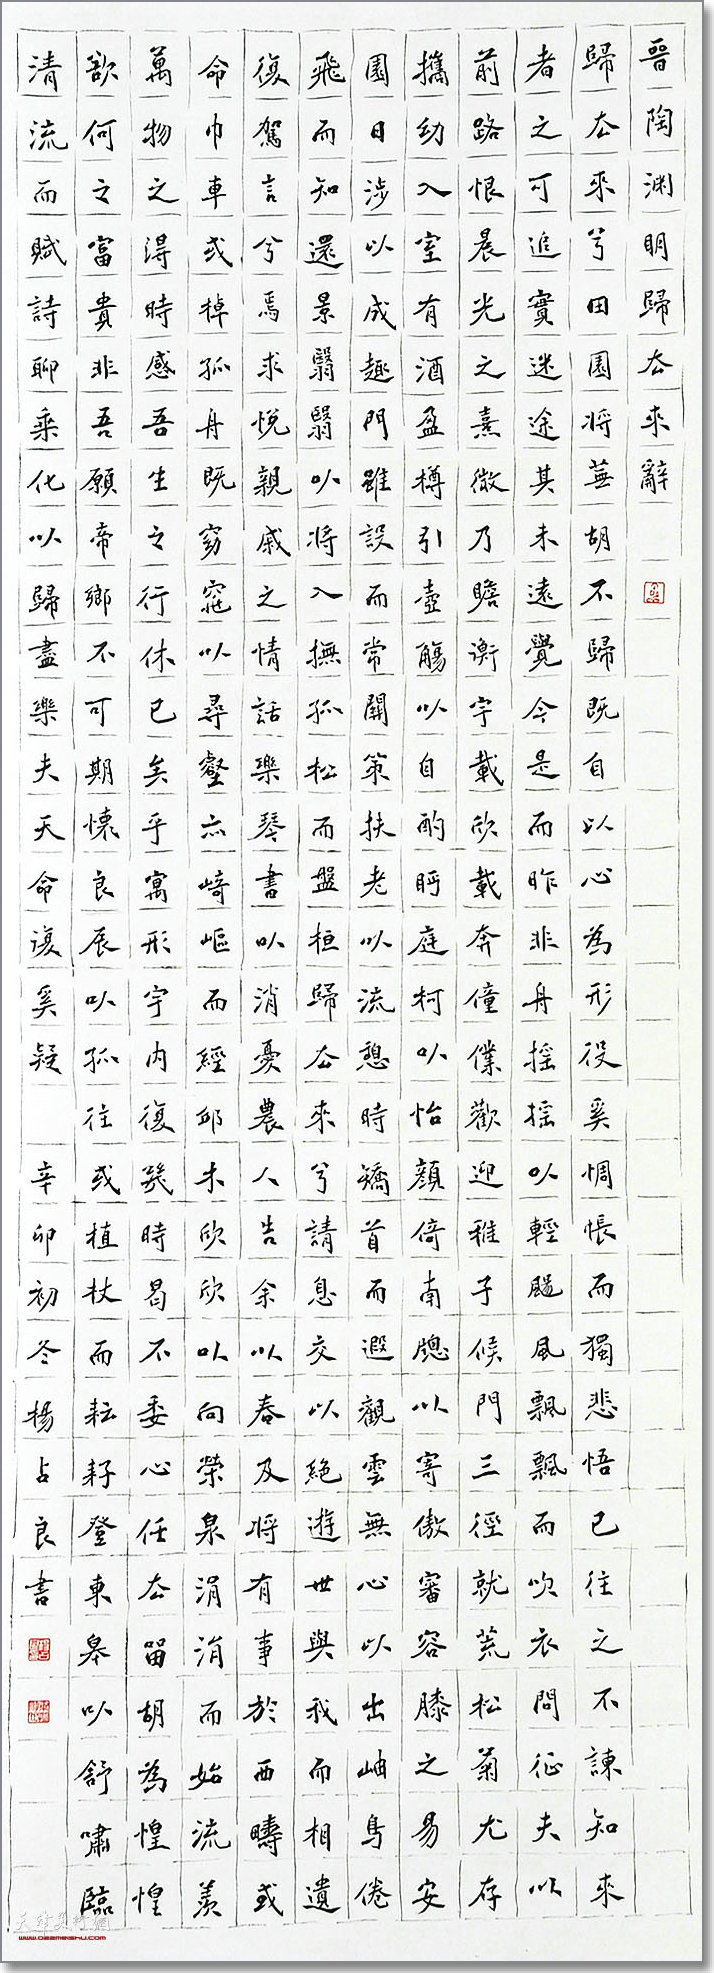 晉陶渊明歸去來辭
歸去來兮田園将蕪胡不歸既自以心為形役奚惆悵而獨悲悟已往之不諫知來
者之可追實迷途其未遠覺今是而昨非舟揺揺以輕颺風飄飄而吹衣問征夫以
前路恨晨光之熹微乃瞻衡宇載欣載奔僮僕歡迎稚子候門三徑就荒松菊尤存
攜幼入室有酒盈樽引壺觴以自酌眄庭柯以怡顏倚南牕以寄傲審容膝之易安
園日涉以成趣門雖設而常關策扶老以流憩時矯首而遐觀雲無心以出岫鳥倦
飛而知還景翳翳以将入撫孤松而盤桓歸去來兮請息交以絶遊世與我而相遺
復駕言兮焉求悦親戚之情話樂琴書以消憂農人告余以春及将有事於西疇或
命巾車或棹孤舟既窈窕以尋壑亦崎嶇而經邱木欣欣以向榮泉涓涓而始流羨
萬物之得時感吾生之行休已矣乎寓形宇内復幾時曷不委心任去留胡為惶惶
欲何之富貴非吾願帝鄉不可期懷良辰以孤往或植杖而耘耔登東皋以舒嘯臨
清流而賦詩聊乘化以歸盡樂夫天命復奚疑 辛卯初冬楊占良書